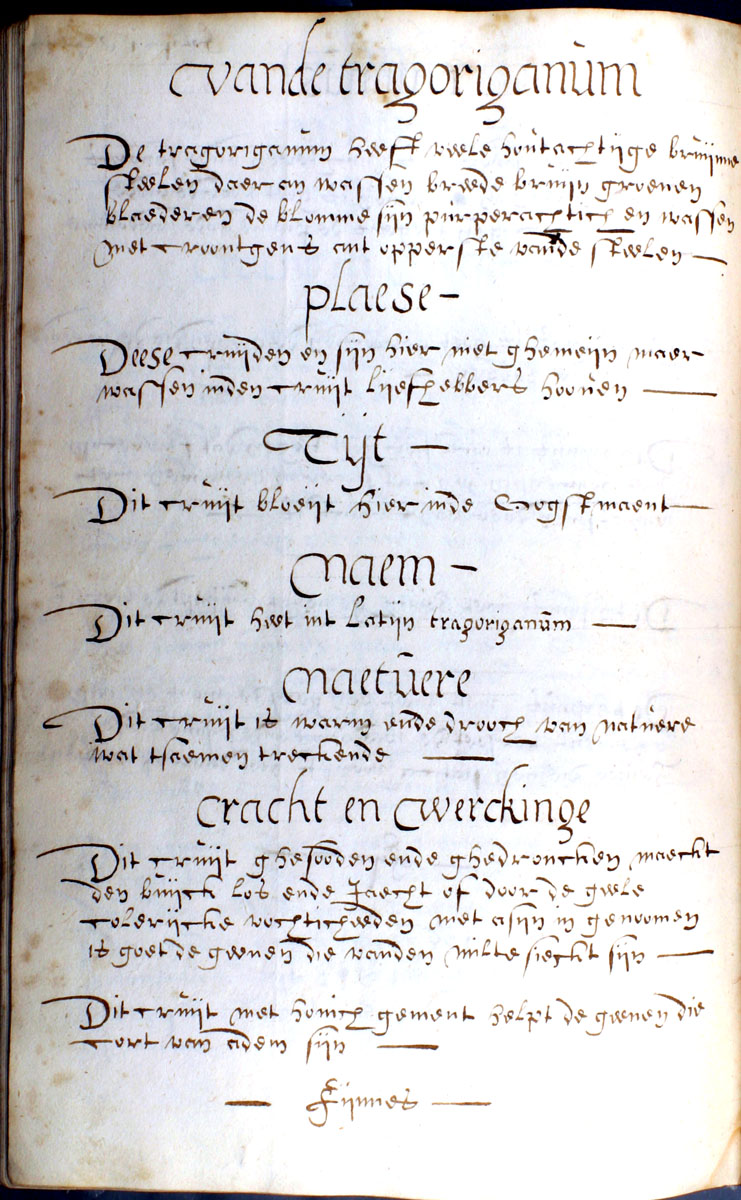 Vande tragoriganum
De tragoriganum heeft veele houtachtijge bruijne
steelen daer an wassen breede bruijn groenen
blaederen de blomme sijn purperachtich en wassen
met croontgens ant opperste vande steelen
plaese
Deese cruijden en sijn hier niet ghemeijn maer
wassen inden cruijt liefhebbers hooven
Tijt
Dit cruijt bloeijt hier inde Oogstmaent
Naem
Dit cruijt heet int Latijn tragoriganum
Naetuere
Dit cruijt is warm ende drooch van natuere
wat tsaemen treckende
Cracht en Werckinge
Dit cruijt ghesooden ende ghedroncken maeckt
den buijck los ende Jaecht of door de geele
colerijcke vochticheeden met asijn in genoomen
is goet de geenen die vanden milte sieckt sijn
Dit cruijt met honich gement helpt de geenen die
cort van adem sijn
Fijnnes